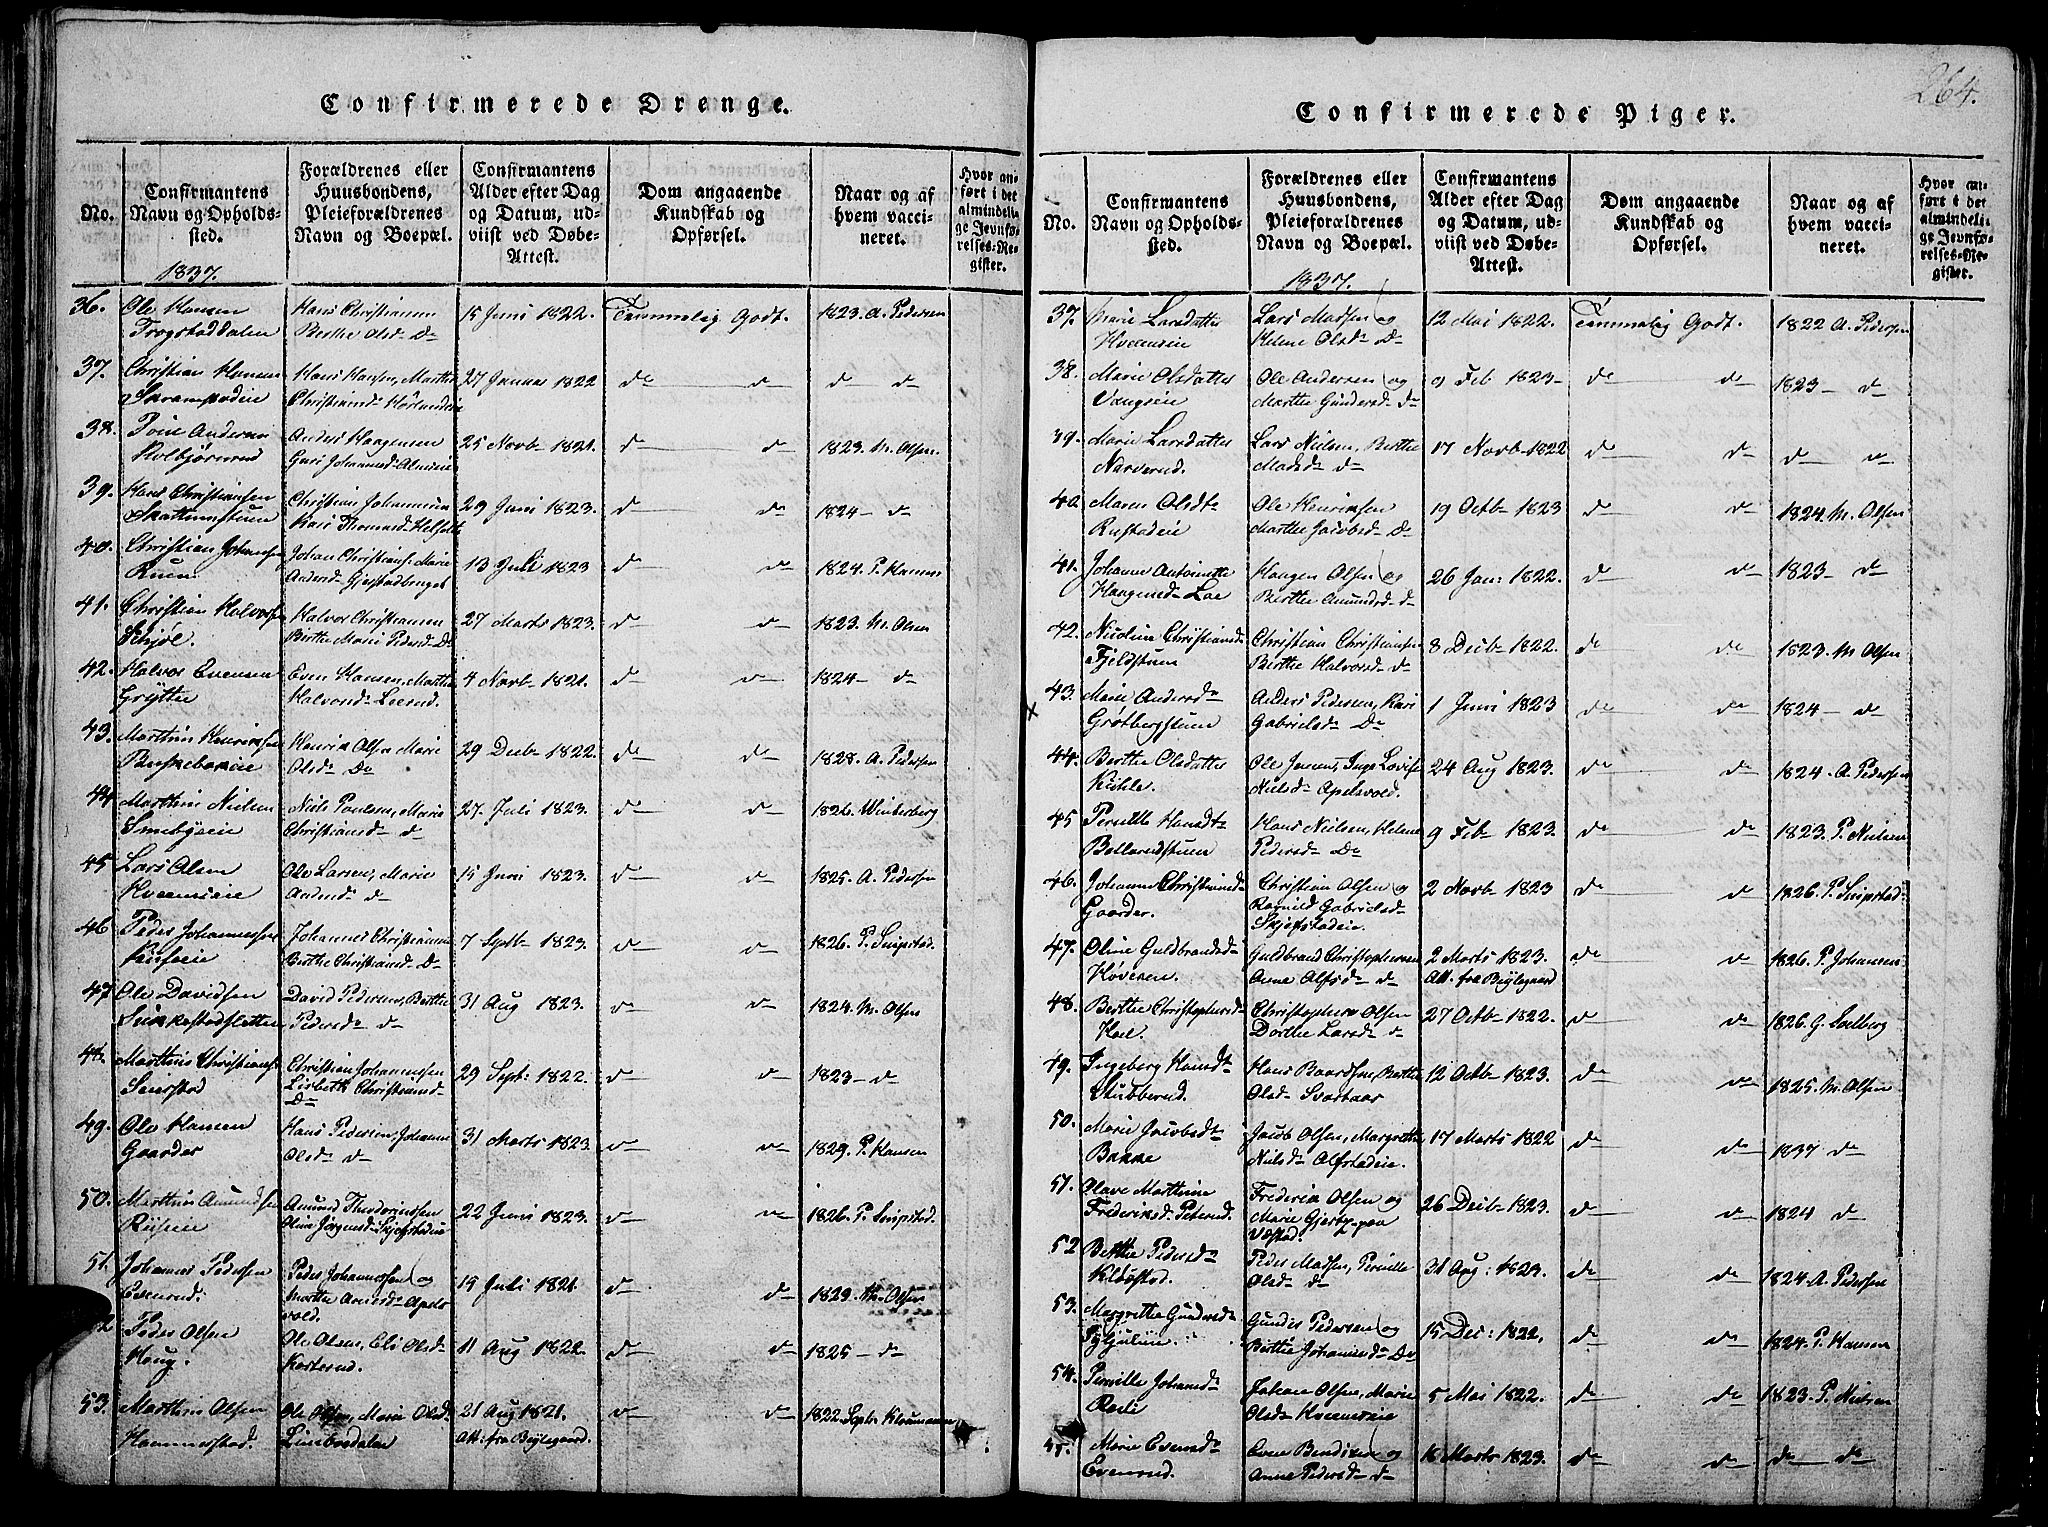 264.
Confirmerede Drenge.
No.
Confirmantens Navn og Opholds-sted.
Forældrenes eller Huusbondens, Pleieforældrenes Navn og Boepæl.
Confirmantens Alder efter Dag og Datum, ud-viist ved Døbe-Attest.
Dom angaaende Kundskab og Opførsel.
Naar og af hvem vacci-neret.
Hvor an-ført i det almindeli-ge Jevnfø-relses-Re-gister.
1837.
36. Ole Hansen Hans Christiansen 15 Juni 1822. Temmelig Godt. 1823. A. Pedersen
Trogstaddalen Berthe Olsd- D-
37. Christian Hansen Hans Hansen, Marthe 27 Januar 1822 do do d d
Christiansd-
38. Andersen Anders Haagensen 25 Novb- 1821. d d 1823. M. Olsen
Guri Johannesd-
39. Hans Christiansen Christian Johannesen 29 Juni 1823. d do 1824 - d-
Kari Thomasd-
40. Christian Johansen Johan Christians. Marie 13 Juli 1823 d do 1824. P. Hansen
Ruen Andersd-
41. Christian Halvorsen Halvor Christiansen 27 Marts 1823. d do 1823. M. Olsen
Schjøl. Berthe Marie Pedersd- D-
42. Halvor Evensen Even Hansen, Marthe 4 Novb- 1821. d d- 1824 - d-
Grytte Halvorsd- Leerud.
43. Marthin Henriksen Henrik Olsen Marie 29 Decb- 1822. do do 1828. A. Pedersen
Olsd- D-
44. Marthin Nielsen Niels Poulsen, Marie 27. Juli 1823. d d 1826. Winterberg
Smebyeie Christiansd- d
45 Lars Olsen Ole Larsen, Marie 15 Juni 1823. d- do 1825. A. Pedersen
Hveemseie Andersd- d-
46 Peder Johannessen Johannes Christiansen 7 Septb- 1823. d do 1826. P. Snipstad.
Berthe Christiansd- D-
47 Ole Davidsen David Pedersen, Berthe 31 Aug 1823. d do 1824. M. Olsen
Pedersd- d-
48. Marthin Christians. Christian Johannessen 29 Sept: 1822. d do 1823 - d-
Lisbeth Christiansd-
D-
49. Ole Hansen Hans Pedersen, Johanne 31 Marts 1823. d do 1829. P. Hansen
Gaarder Olsd- d-
50. Marthin Amundsen Amund 22 Juni 1823. d do 1826. P. Snipstad.
Oline Jørgensd-
51. Johannes Pedersen Peder Johannessen og 19 Juli 1821. d- do 1823. M. Olsen
Evenrud. Marthe Andersd- Apels-
vold.
52 Peder Olsen Ole Olsen, Eli Olsd- 11 Aug 1822. d- do 1825 - d-
Haug.
53. Marthin Olsen Ole Olsen, Maria Olsd- 21 Aug 1821. d- do 1822. Septr
Hammerstad. Att: fra
Confirmerede Piger.
No.
Confirmantens Navn og Opholds-sted.
Forældrenes eller Huusbondens, Pleieforældrenes Navn og Boepæl.
Confirmantens Alder efter Dag og Datum, ud-viist ved Døbe-Attest.
Dom angaaende Kundskab og Opførsel.
Naar og af hvem vacci-neret.
Hvor an-ført i det almindeli-ge Jevnfø-relses-Re-gister.
1837.
37. Marie Larsdatter Lars Madsen og 12 Mai 1822. Temmelig Godt. 1822 A. Pedersen
Hveemseie Helene Olsd- D-
38. Marie Olsdatter Ole Andersen og 9 Feb 1823- do do 1823 - d-
Vangseie Marthe Gundersd- D-
39. Marie Larsdatter Lars Nielsen, Berthe 17 Novb- 1822 d- d- d- d-
Narverud. Madsd- d-
40 Maren Olsdt- Ole Henriksen 19 Octb- 1823 d d- 1824. M. Olsen
Rustadeie Marthe Jacobsd- D-
41. Johanne Antoinette Haagen Olsen og 26 Jan: 1822. d do 1823 - d-
Haagensd- Loe Berthe Amundsd- d-
42. Nicoline Christiansd- Christian Christiansen 8 Decb- 1822. do do 1823. M. Olsen
Fjeldstuen Berthe Halvorsd- d-
x 43. Marie Andersd- Anders Pedersen, Kari 1 Juni 1823 do do 1824 - d-
Grotbergstuen Gabrielsd- D-
44. Berthe Olsdatter Ole Jensen, Inge Lovise 24 Aug 1823. do do 1824. A. Pedersen
Kihle. Nielsd- Apelsvold.
45 Pernille Hansdt- Hans Nielsen, Helene 9 Feb- 1823. do do 1823. P. Nielsen
Bollerudstuen Pedersd- D-
46. Johanne Christiansd- Christian Olsen og 2 Novb- 1823 do d 1826. P. Snipstad.
Gaarder. Ragnild Gabrielsd-
Skjefstadeie.
47. Oline Guldbrandsd- Guldbrand Christophersen 2 Marts 1823. do do 1826. P. Johansen
Anne Olsd- d- Att. fra
48. Berthe Christophersd- Christopher Olsen 27 Octb- 1822. d do 1826. G. Soelberg
Dorthe Larsd- d
49. Ingeberg Hansdt- Hans Baardsen, Berthe 12 Octb- 1823. do do 1825. M. Olsen
Stubberud. Olsd- Svartaas
50. Marie Jacobsdt- Jacob Olsen, Margrethe 17 Marts 1822 do do 1837 do
Bakke Nielsd- Alfstadeie.
51. Olave Marthine Frederik Olsen og 26 Decb- 1823. do do 1824 do
Frederiksd- Peterud. Marie Gjerby paa
52 Berthe Pedersd- Peder Madsen, Pernille 31 Aug: 1823. do do 1824. A. Pedersen
Kløvstad. Olsd- d-
53. Margrethe Gundersd- Gunder Pedersen og 15 Dec: 1822. do do 1824. P. Hansen
Berthe Johansd- D-
54. Pernille Johansd- Johan Olsen, Marie 5 Mai 1822. do do 1823. P. Nielsen
Olsd- Hveemseie
55. Marie Evensd- Even Bendixen og 16 Marts 1823. do do do do
Evenrud. Anne Pedersd- d-